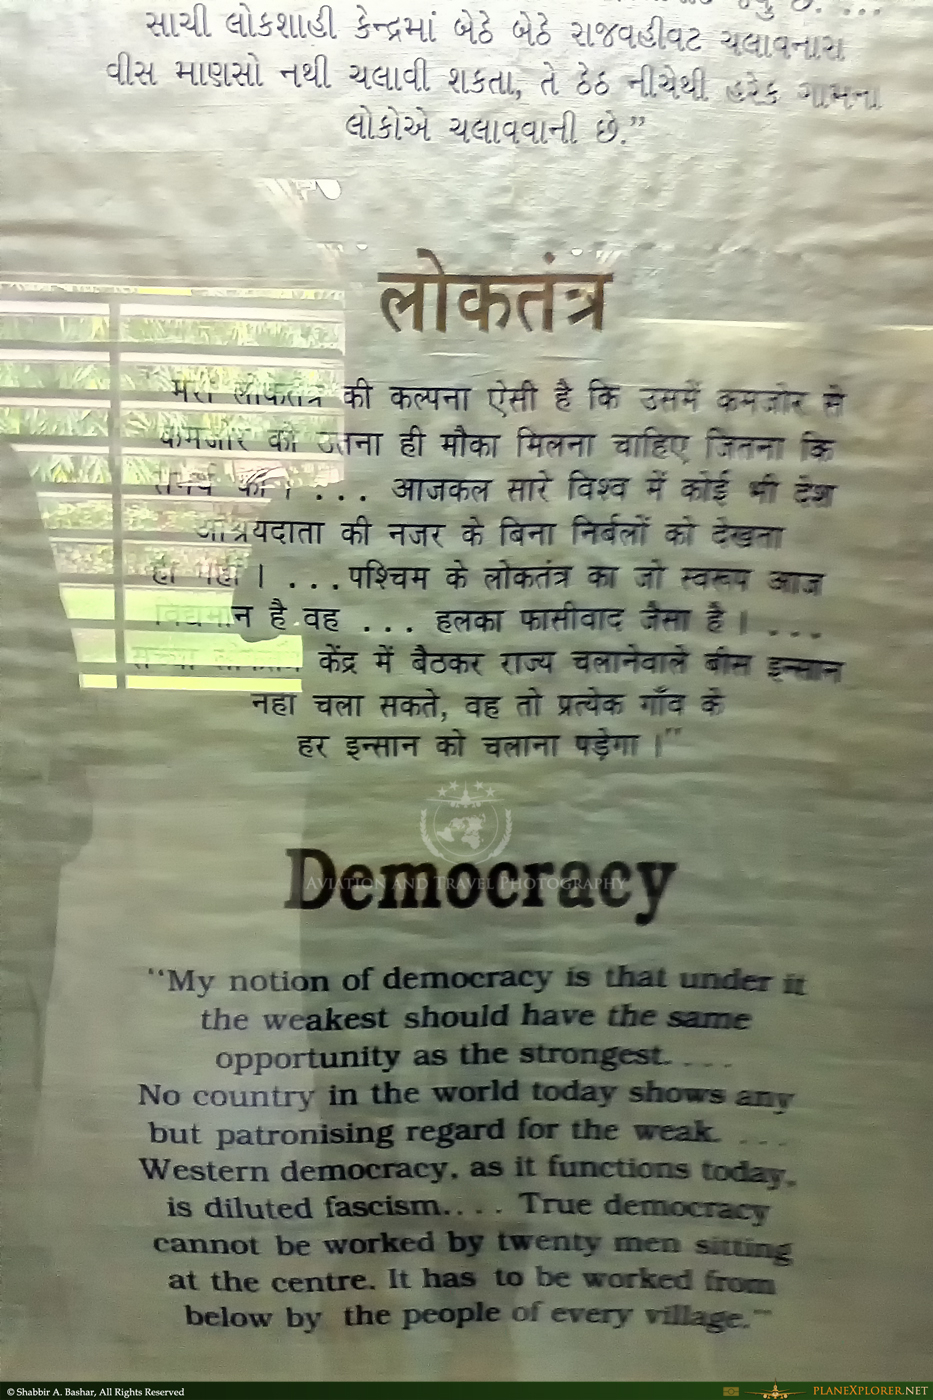 સાચી લોકશાહી કેન્દ્રમાં બેઠે બેઠે રાજવહીવટ ચલાવનારા
વીસ માણસો નથી ચલાવી શકતા, તે ઠેઠ નીચેથી હરેક ગામના
લોકોએ ચલાવવાની છે.”
लोकतंत्र
मेरी लोकतंत्र की कल्पना ऐसी है कि उसमें कमजोर से
कमजोर को उतना ही मौका मिलना चाहिए जितना कि
समर्थ को । . . . आजकल सारे विश्व में कोई भी देश
आश्रयदाता की नजर के बिना निर्बलों को देखता
ही नहीं । . . . पश्चिम के लोकतंत्र का जो स्वरूप आज
विद्यमान है वह . . . हलका फासीवाद जैसा है । . . .
सच्चा लोकतंत्र केंद्र में बैठकर राज्य चलानेवाले बीस इन्सान
नहीं चला सकते, वह तो प्रत्येक गाँव के
हर इन्सान को चलाना पड़ेगा ।”
AVIATION AND TRAVEL PHOTOGRAPHY
Democracy
“My notion of democracy is that under it
the weakest should have the same
opportunity as the strongest. . . .
No country in the world today shows any
but patronising regard for the weak. . . .
Western democracy, as it functions today,
is diluted fascism. . . . True democracy
cannot be worked by twenty men sitting
at the centre. It has to be worked from
below by the people of every village.”
© Shabbir A. Bashar, All Rights Reserved
PLANEXPLORER.NET